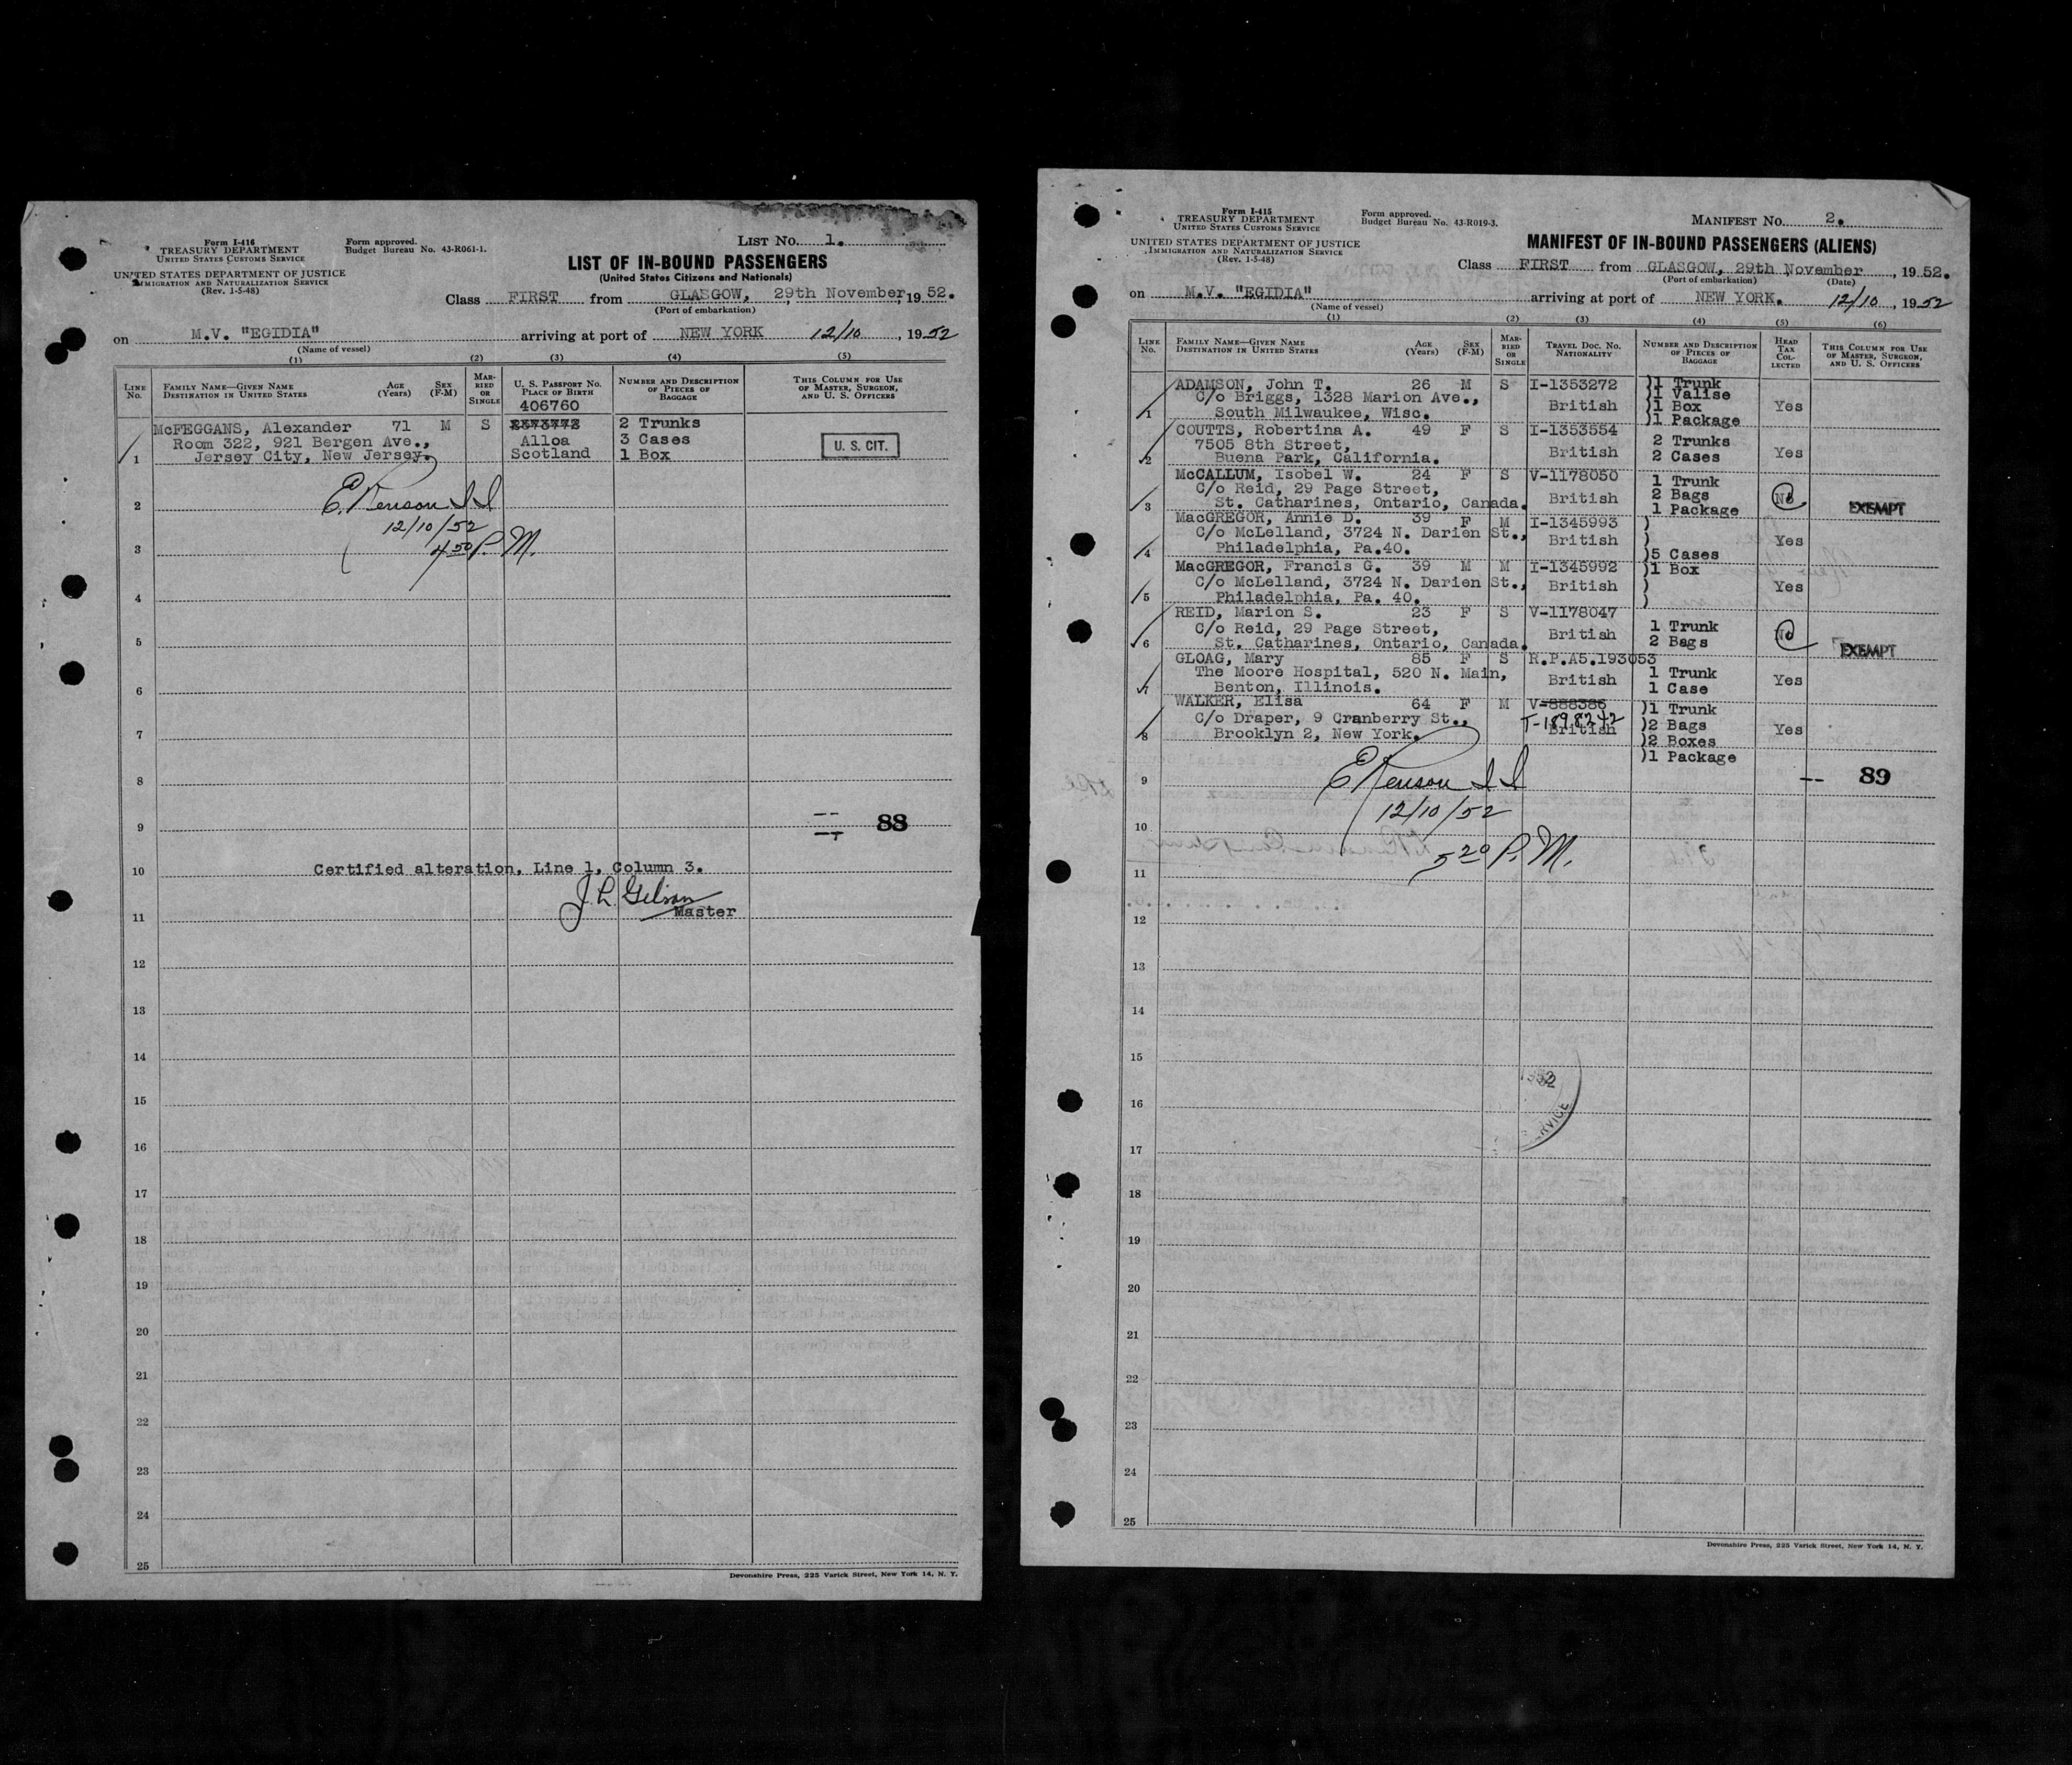 Form I-416
TREASURY DEPARTMENT
UNITED STATES CUSTOMS SERVICE
UNITED STATES DEPARTMENT OF JUSTICE
IMMIGRATION AND NATURALIZATION SERVICE
(Rev. 1-5-48)
Form approved.
Budget Bureau No. 43-R061-1.
LIST NO. 1.
LIST OF IN-BOUND PASSENGERS
(United States Citizens and Nationals)
Class FIRST from GLASGOW, 29th November, 1952.
(Port of embarkation)
on M.V. "EGIDIA" arriving at port of NEW YORK 12/10, 1952
(Name of vessel)
(1) (2) (3) (4) (5)
LINE NO.
FAMILY NAME—GIVEN NAME
DESTINATION IN UNITED STATES
AGE (Years)
SEX (F-M)
MARRIED OR SINGLE
U. S. PASSPORT NO.
PLACE OF BIRTH
NUMBER AND DESCRIPTION OF PIECES OF BAGGAGE
THIS COLUMN FOR USE OF MASTER, SURGEON, AND U. S. OFFICERS
406760
McFEGGANS, Alexander 71 M S 2 Trunks
Room 322, 921 Bergen Ave., Alloa 3 Cases
1 Jersey City, New Jersey. Scotland 1 Box
U. S. CIT.
2
12/10/52
3
4 50 P. M.
4
5
6
7
8
9
88
10 Certified alteration, Line 1, Column 3.
J. L. Gibson
11 Master
12
13
14
15
16
17
18
19
20
21
22
23
24
25
Devonshire Press, 225 Varick Street, New York 14, N. Y.
Form I-415
TREASURY DEPARTMENT
UNITED STATES CUSTOMS SERVICE
UNITED STATES DEPARTMENT OF JUSTICE
IMMIGRATION AND NATURALIZATION SERVICE
(Rev. 1-5-48)
Form approved.
Budget Bureau No. 43-R019-3.
MANIFEST NO. 2.
MANIFEST OF IN-BOUND PASSENGERS (ALIENS)
Class FIRST from GLASGOW, 29th November, 1952.
(Port of embarkation) (Date)
on M.V. "EGIDIA" arriving at port of NEW YORK. 12/10, 1952
(Name of vessel)
(1) (2) (3) (4) (5) (6)
LINE NO.
FAMILY NAME—GIVEN NAME
DESTINATION IN UNITED STATES
AGE (Years)
SEX (F-M)
MARRIED OR SINGLE
TRAVEL DOC. NO.
NATIONALITY
NUMBER AND DESCRIPTION OF PIECES OF BAGGAGE
HEAD TAX COLLECTED
THIS COLUMN FOR USE OF MASTER, SURGEON, AND U. S. OFFICERS
ADAMSON, John T. 26 M S I-1353272 )1 Trunk
C/o Briggs, 1328 Marion Ave., )1 Valise
1 South Milwaukee, Wisc. British )1 Box Yes
)1 Package
COUTTS, Robertina A. 49 F S I-1353554
7505 8th Street, 2 Trunks
2 Buena Park, California. British 2 Cases Yes
McCALLUM, Isobel W. 24 F S V-1178050 1 Trunk
C/o Reid, 29 Page Street, 2 Bags
3 St. Catharines, Ontario, Canada. British 1 Package No EXEMPT
MacGREGOR, Annie D. 39 F M I-1345993 )
C/o McLelland, 3724 N. Darien St., British ) Yes
4 Philadelphia, Pa.40. )5 Cases
MacGREGOR, Francis G. 39 M M I-1345992 )1 Box
C/o McLelland, 3724 N. Darien St., British ) Yes
5 Philadelphia, Pa. 40. )
REID, Marion S. 23 F S V-1178047
C/o Reid, 29 Page Street, British 1 Trunk No
6 St. Catharines, Ontario, Canada. 2 Bags EXEMPT
GLOAG, Mary 85 F S R.P.A5.193053
The Moore Hospital, 520 N. Main, British 1 Trunk Yes
7 Benton, Illinois. 1 Case
WALKER, Elisa 64 F M V-888386 )1 Trunk
C/o Draper, 9 Cranberry St., T-1898242 )2 Bags
8 Brooklyn 2, New York. British )2 Boxes Yes
)1 Package
9
89
12/10/52
10
5 20 P. M.
11
12
13
14
15
1952
16
17
18
19
20
21
22
23
24
25
Devonshire Press, 225 Varick Street, New York 14, N. Y.